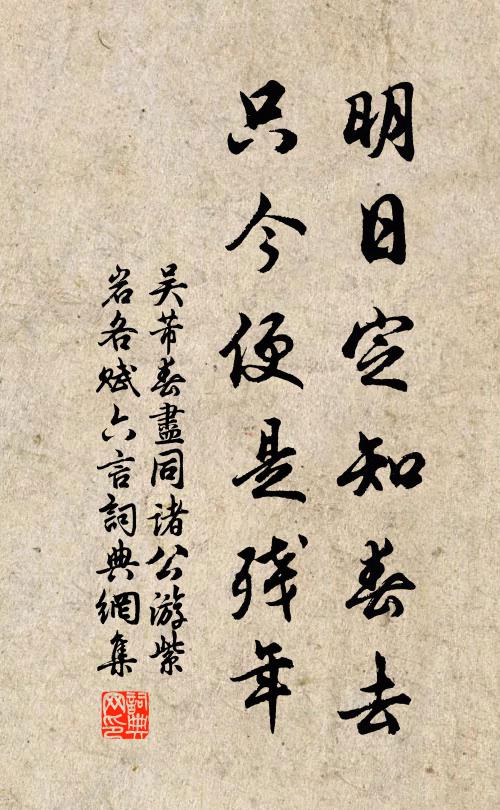 明日定知春去
只今便是残年
吴芾春盡同诸公游紫
岩各赋六言詞典網集
詞典網印